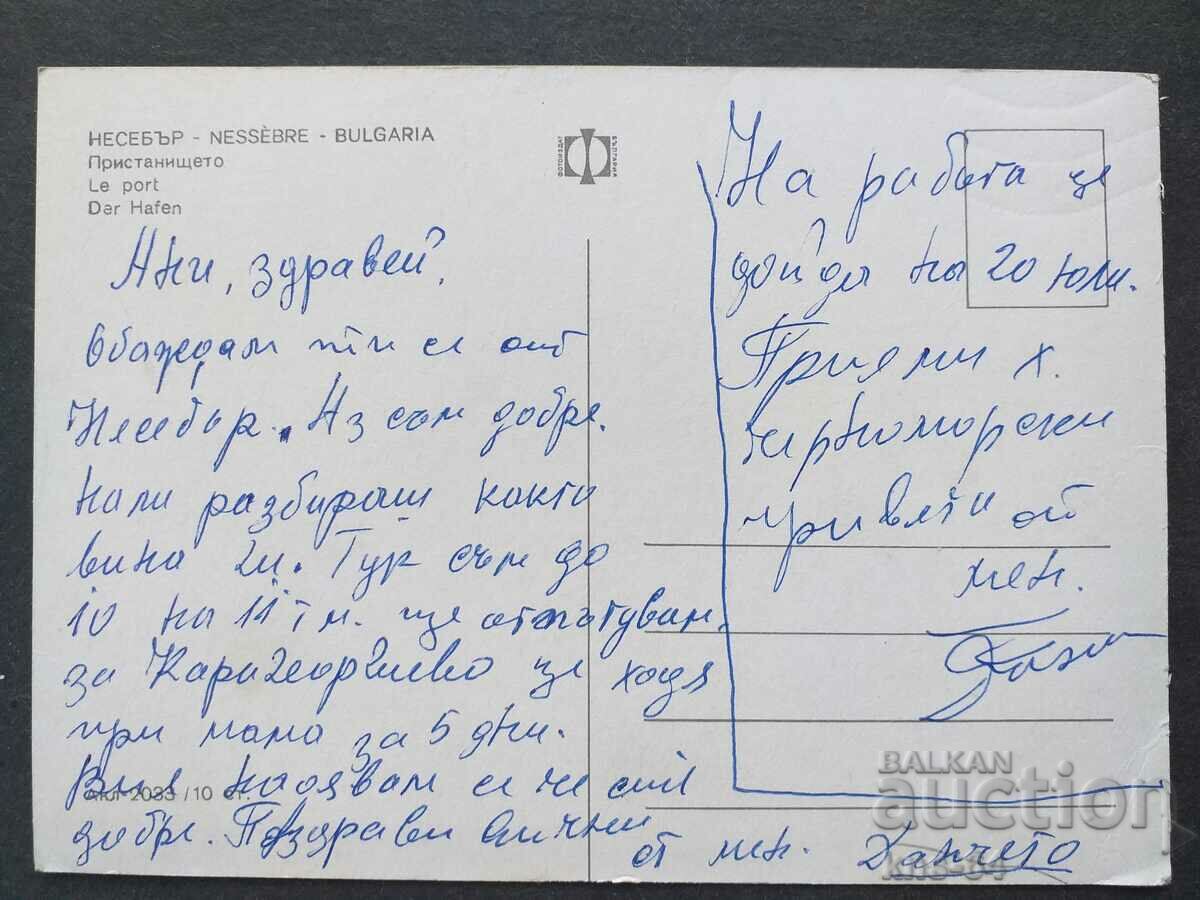 НЕСЕБЪР - NESSÈBRE - BULGARIA
Пристанището
Le port
Der Hafen
ФОТОИЗДАТ
БЪЛГАРИЯ
Ани, здравей,
Обаждам ти се от
Несебър. Аз съм добре.
нали разбираш както
вина 2м. Тук съм до
10 на 11 т м. ще отпътувам
за Карагеоргиево ще ходя
при мама за 5 дни.
Вие надявам се че сте
добре. Поздрави всички
от мен. Данчето
На работа ще
дойда на 20 юли.
Приеми х.
черноморски
привети от
мен.
2033/10 ст.
BALKAN
auction